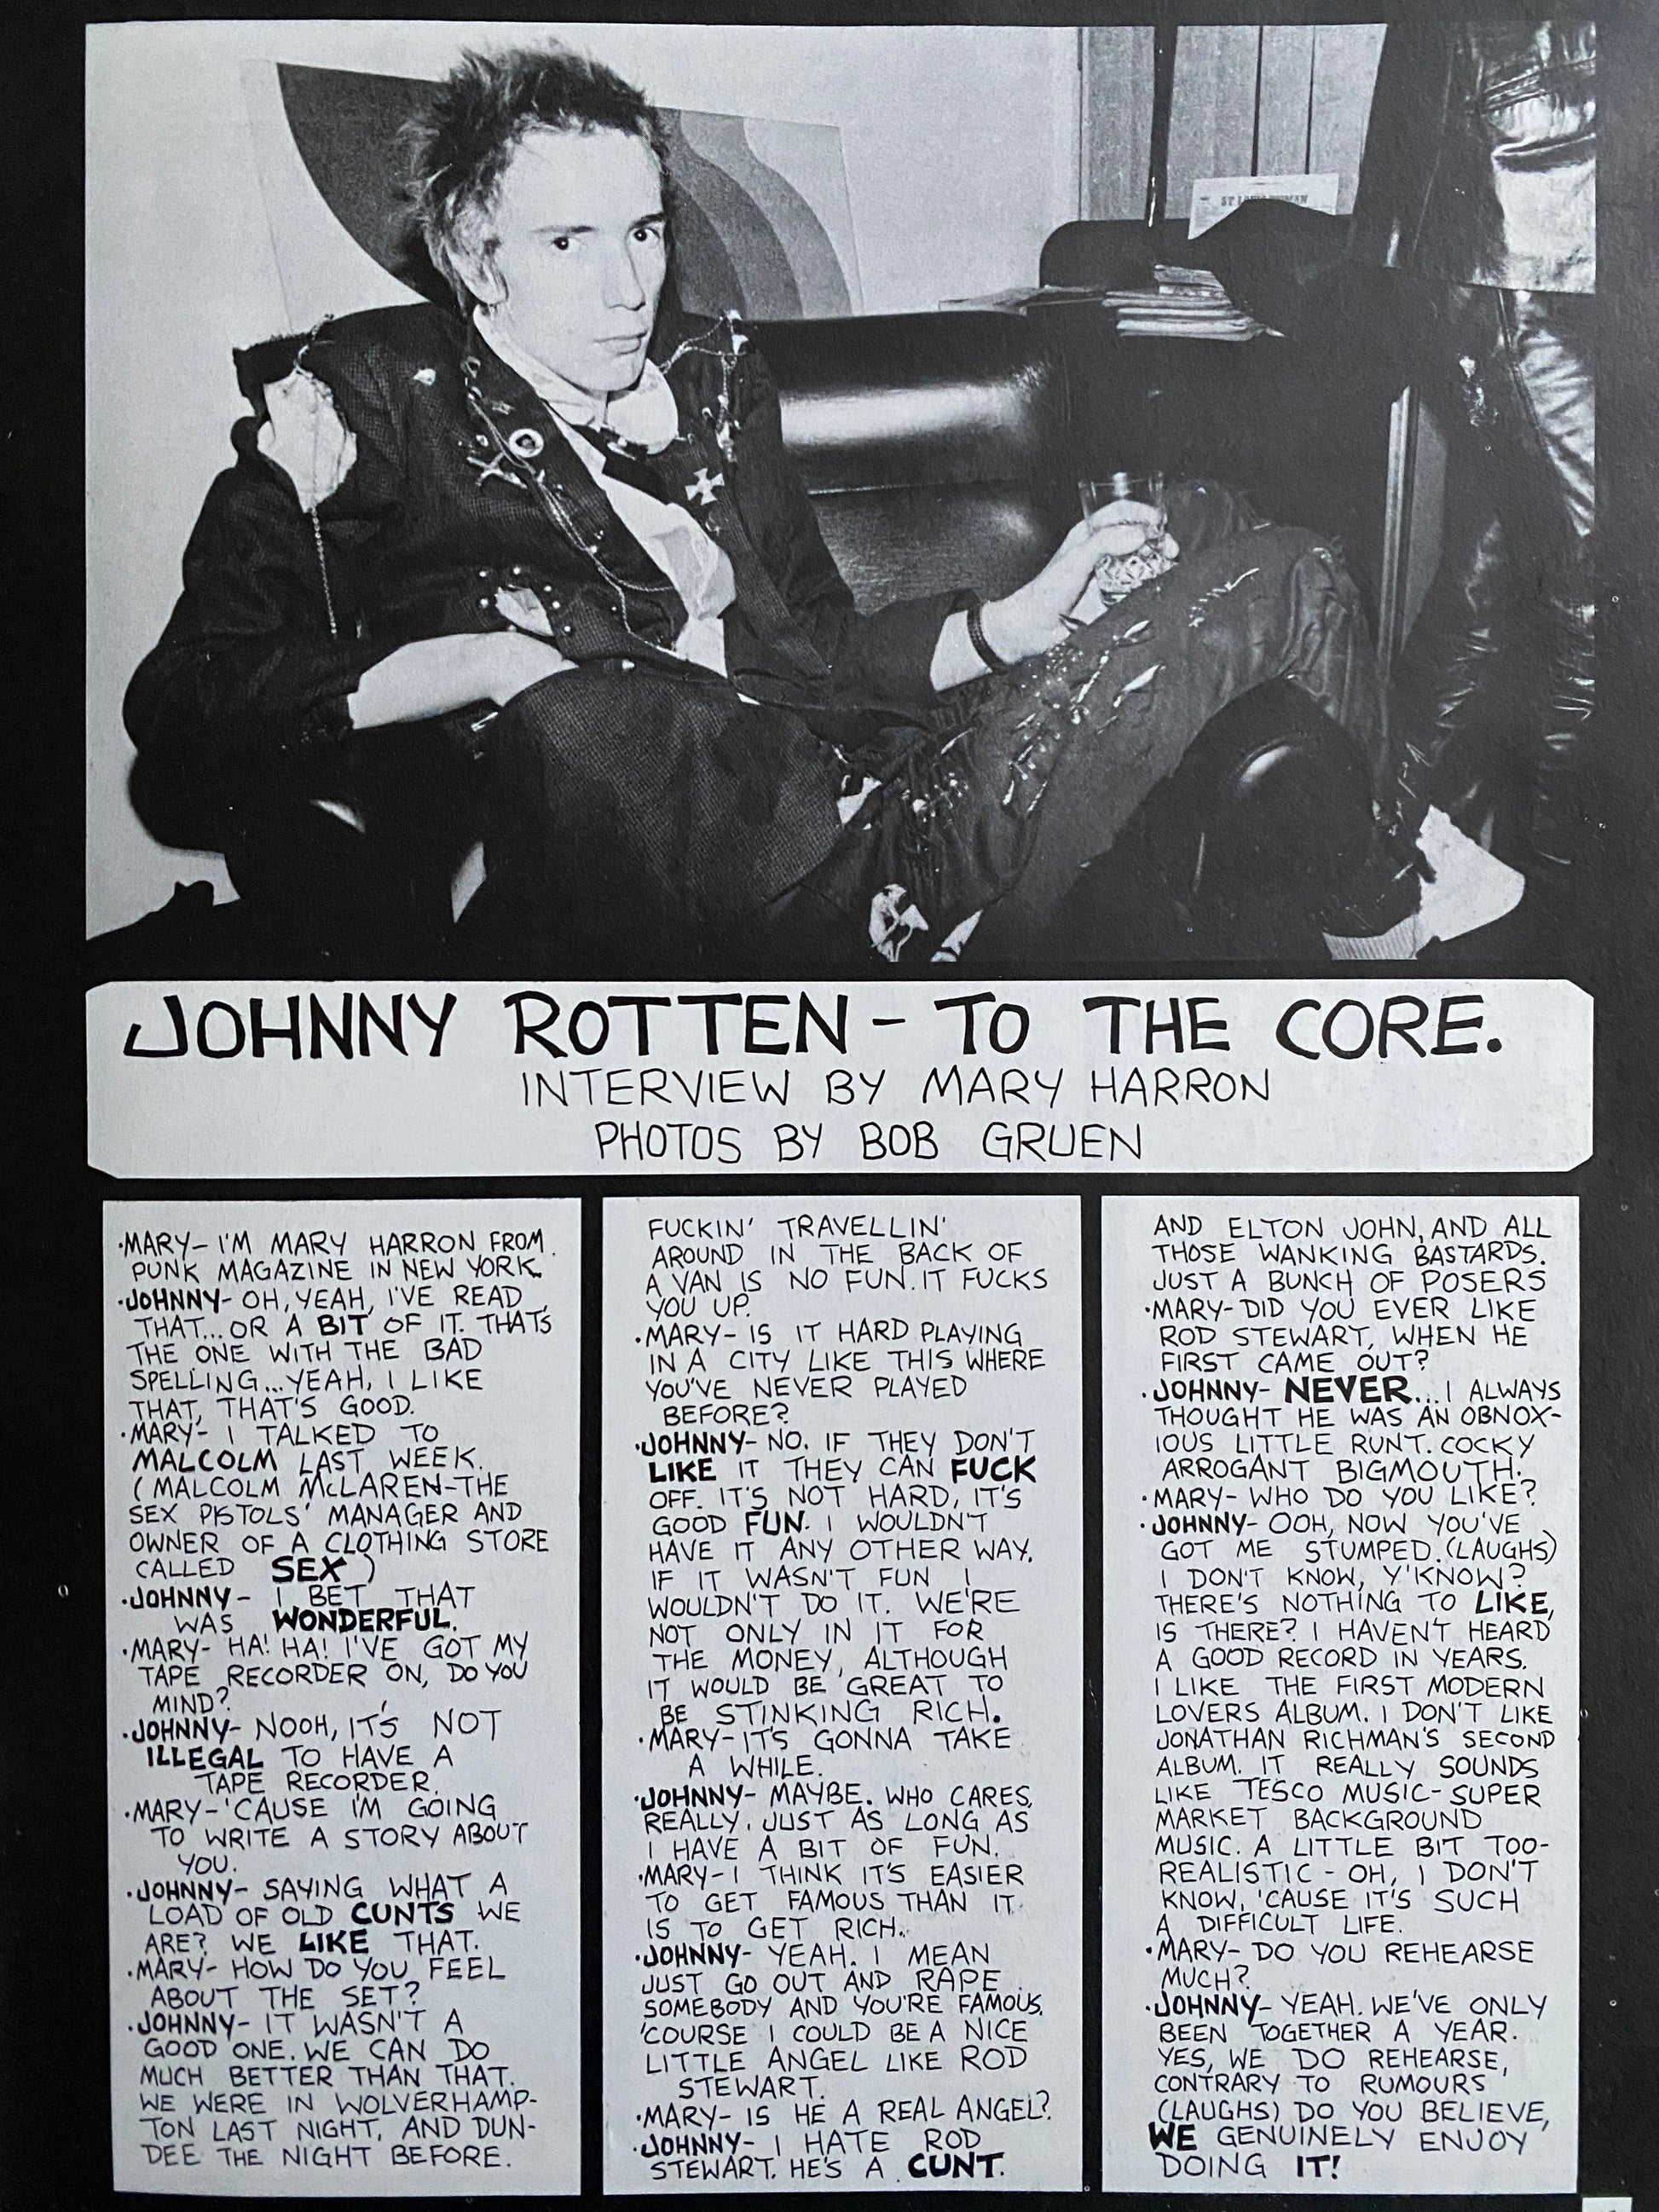 ST. LOUIS WOMAN
JOHNNY ROTTEN - TO THE CORE.
INTERVIEW BY MARY HARRON
PHOTOS BY BOB GRUEN
·MARY- I'M MARY HARRON FROM
PUNK MAGAZINE IN NEW YORK.
·JOHNNY- OH, YEAH, I'VE READ
THAT... OR A BIT OF IT. THAT'S
THE ONE WITH THE BAD
SPELLING... YEAH, I LIKE
THAT, THAT'S GOOD.
·MARY- I TALKED TO
MALCOLM LAST WEEK.
(MALCOLM McLAREN-THE
SEX PISTOLS' MANAGER AND
OWNER OF A CLOTHING STORE
CALLED SEX)
·JOHNNY- I BET THAT
WAS WONDERFUL.
·MARY- HA! HA! I'VE GOT MY
TAPE RECORDER ON, DO YOU
MIND?
·JOHNNY- NOOH, IT'S NOT
ILLEGAL TO HAVE A
TAPE RECORDER.
·MARY-'CAUSE I'M GOING
TO WRITE A STORY ABOUT
YOU.
·JOHNNY- SAYING WHAT A
LOAD OF OLD CUNTS WE
ARE? WE LIKE THAT.
·MARY- HOW DO YOU FEEL
ABOUT THE SET?
·JOHNNY- IT WASN'T A
GOOD ONE. WE CAN DO
MUCH BETTER THAN THAT.
WE WERE IN WOLVERHAMP-
TON LAST NIGHT, AND DUN-
DEE THE NIGHT BEFORE.
FUCKIN' TRAVELLIN'
AROUND IN THE BACK OF
A VAN IS NO FUN. IT FUCKS
YOU UP.
·MARY- IS IT HARD PLAYING
IN A CITY LIKE THIS WHERE
YOU'VE NEVER PLAYED
BEFORE?
·JOHNNY- NO. IF THEY DON'T
LIKE IT THEY CAN FUCK
OFF. IT'S NOT HARD, IT'S
GOOD FUN. I WOULDN'T
HAVE IT ANY OTHER WAY.
IF IT WASN'T FUN I
WOULDN'T DO IT. WE'RE
NOT ONLY IN IT FOR
THE MONEY, ALTHOUGH
IT WOULD BE GREAT TO
BE STINKING RICH.
·MARY-IT'S GONNA TAKE
A WHILE.
·JOHNNY- MAYBE. WHO CARES,
REALLY. JUST AS LONG AS
I HAVE A BIT OF FUN.
·MARY-I THINK IT'S EASIER
TO GET FAMOUS THAN IT
IS TO GET RICH.
·JOHNNY- YEAH. I MEAN
JUST GO OUT AND RAPE
SOMEBODY AND YOU'RE FAMOUS.
'COURSE I COULD BE A NICE
LITTLE ANGEL LIKE ROD
STEWART.
·MARY- IS HE A REAL ANGEL?
·JOHNNY- I HATE ROD
STEWART. HE'S A CUNT.
AND ELTON JOHN, AND ALL
THOSE WANKING BASTARDS.
JUST A BUNCH OF POSERS
·MARY-DID YOU EVER LIKE
ROD STEWART, WHEN HE
FIRST CAME OUT?
·JOHNNY- NEVER... I ALWAYS
THOUGHT HE WAS AN OBNOX-
IOUS LITTLE RUNT. COCKY
ARROGANT BIGMOUTH.
·MARY-WHO DO YOU LIKE?
·JOHNNY- OOH, NOW YOU'VE
GOT ME STUMPED. (LAUGHS)
I DON'T KNOW, Y'KNOW?
THERE'S NOTHING TO LIKE,
IS THERE? I HAVEN'T HEARD
A GOOD RECORD IN YEARS.
I LIKE THE FIRST MODERN
LOVERS ALBUM. I DON'T LIKE
JONATHAN RICHMAN'S SECOND
ALBUM. IT REALLY SOUNDS
LIKE TESCO MUSIC-SUPER
MARKET BACKGROUND
MUSIC. A LITTLE BIT TOO-
REALISTIC - OH, I DON'T
KNOW, 'CAUSE IT'S SUCH
A DIFFICULT LIFE.
·MARY- DO YOU REHEARSE
MUCH?
·JOHNNY- YEAH. WE'VE ONLY
BEEN TOGETHER A YEAR.
YES, WE DO REHEARSE,
CONTRARY TO RUMOURS
(LAUGHS) DO YOU BELIEVE,
WE GENUINELY ENJOY
DOING IT!